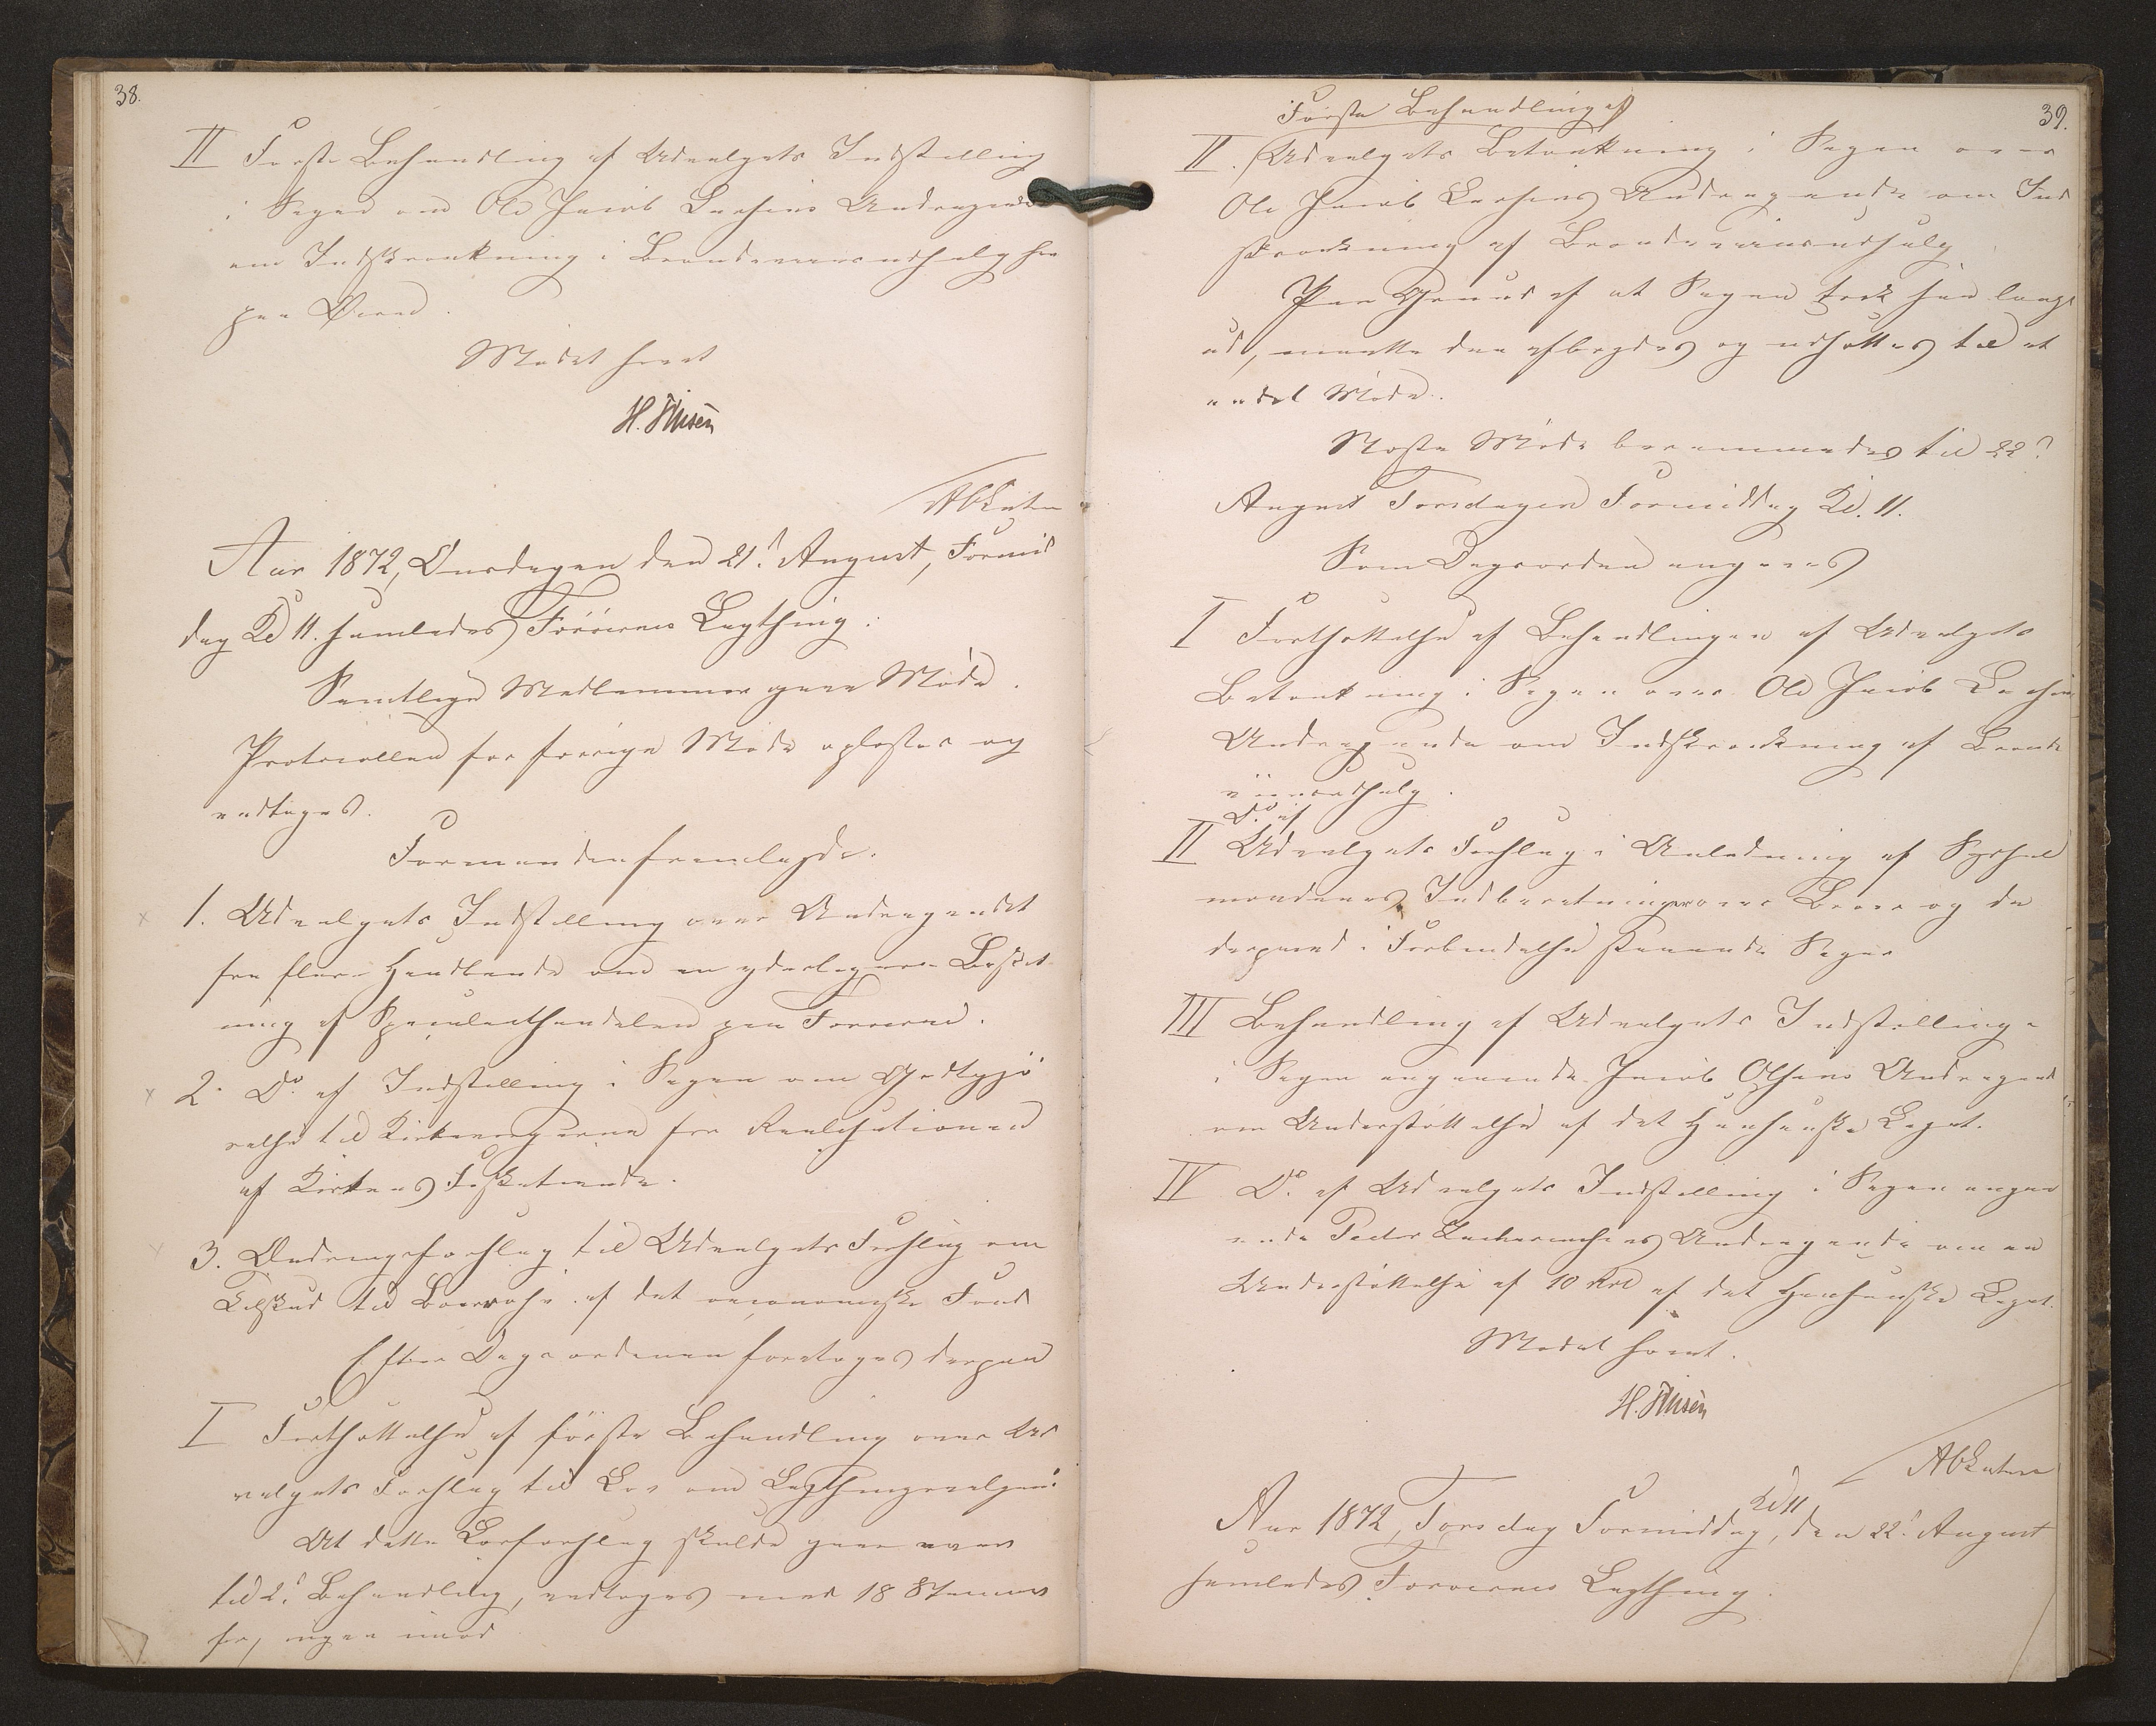 38.
II Første Behandling af Udvalgets Indstilling
i Sagen om Ole Jacob Larsens Andragende
om Indskrænkning i Brændeviinsudsalg her
paa Øerne.
Mødet hævet
H. Finsen
Aar 1872, Onsdagen den 21d August, Formid
dag Kl 11. samledes Færøernes Lagthing.
Samtlige Medlemmer gave Møde.
Protocollen for forrige Møde oplæstes og
vedtoges.
Formanden fremlagde.
1. Udvalgets Indstilling over Andragendet
fra flere Handlende om en yderligere Beskat
ning af Speculanthandelen paa Færøerne.
2. Do af Indstilling i Sagen om Godtgjø
relse til Kirkeværgerne for Realisationen
af Kirkens Fisketiende.
3. Ændringsforslag til Udvalgets Forslag om
Tilskud til af det oeconomiske Fond
Efter Dagsordenen foretoges derpaa
I Fortsættelse af første Behandling over Ud
valgets Forslag til Lov om Lagthingsvalgene.
At dette Lovforslag skulde gaae over
til 2d Behandling, vedtoges med 18 Stemmer
for, ingen imod
39.
Første Behandling af
II. Udvalgets Betænkning i Sagen over
Ole Jacob Larsens Andragende om Ind
skrænkning af Brændeviinsudsalg
Paa Grund af at Sagen trak saa langt
ud, maatte den afbrydes og udsættes til et
andet Møde.
Næste Møde berammedes til 22d
August Torsdagen Formiddag Kl. 11.
Som Dagsorden angaves
I Fortsættelse af Behandlingen af Udvalgets
Betænkning i Sagen over Ole Jacob Larsens
Andragende om Indskrænkning af Brænde
viinsudsalg.
Do af
II Udvalgets Forslag i Anledning af Syssel
mændenes Indberetninger over og de
dermed i Forbindelse staaende Sager
III Behandling af Udvalgets Indstilling
i Sagen angaaende Jacob Olsens Andragende
om Understøttelse af det Hansenske Legat.
IV Do af Udvalgets Indstilling i Sagen angaa
ende Peder Zachariasens Andragende om en
Understøttelse af 10 Rd af det Hansenske Legat.
Mødet hævet.
H. Finsen
Aar 1872, Torsdag Formiddag Kl 11, den 22d August
samledes Færøernes Lagthing.